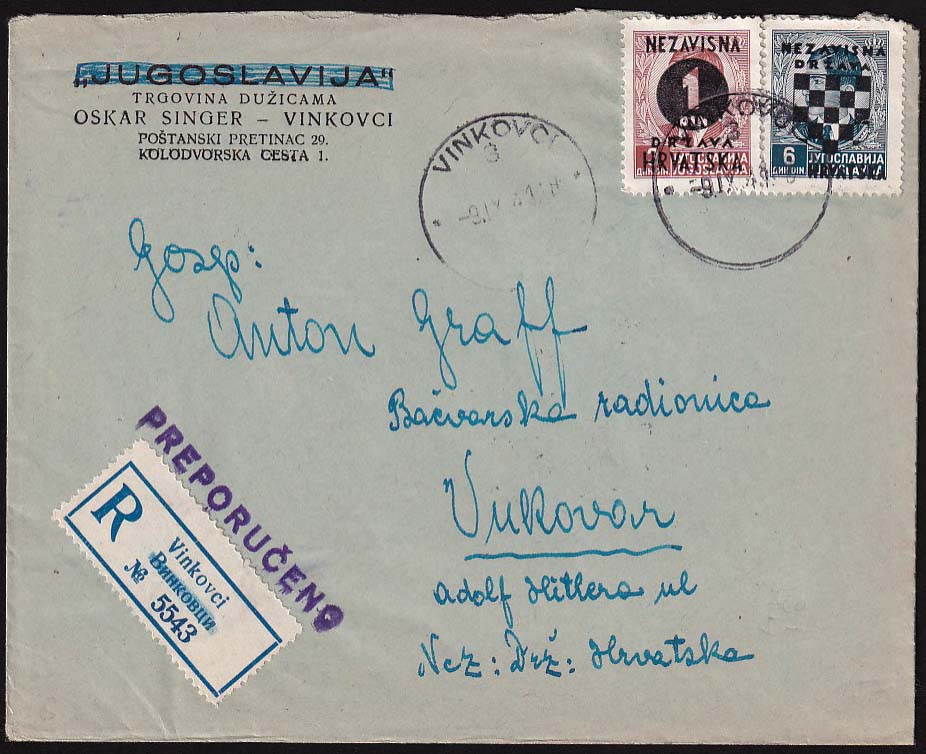 „JUGOSLAVIJA“
TRGOVINA DUŽICAMA
OSKAR SINGER – VINKOVCI
POŠTANSKI PRETINAC 29.
KOLODVORSKA CESTA 1.
NEZAVISNA
1
DRŽAVA
HRVATSKA
NEZAVISNA
DRŽAVA
6
ДИН. DIN.
ЈУГОСЛАВИЈА
HRVATSKA
VINKOVCI
3
VINKOVCI
3
Gosp:
Anton Graff
Bačvarska radionica
Vukovar
Adolf Hitlera ul
Nez: Drž: Hrvatska
PREPORUČENO
R
Vinkovci
Винковци
№ 5543